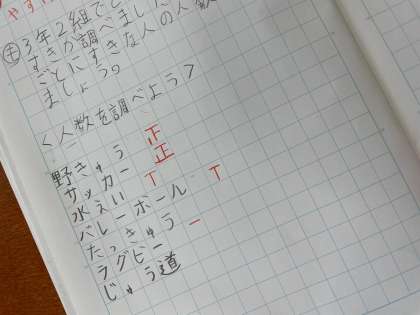 3年2組でど
すきか調べました
ごとにすきな人の人数
ましょう。
<人数を調べよう>
野きゅう 正
サッカー 正
水えい T
バレーボール T
たっきゅう 一
ラグビー
じゅう道